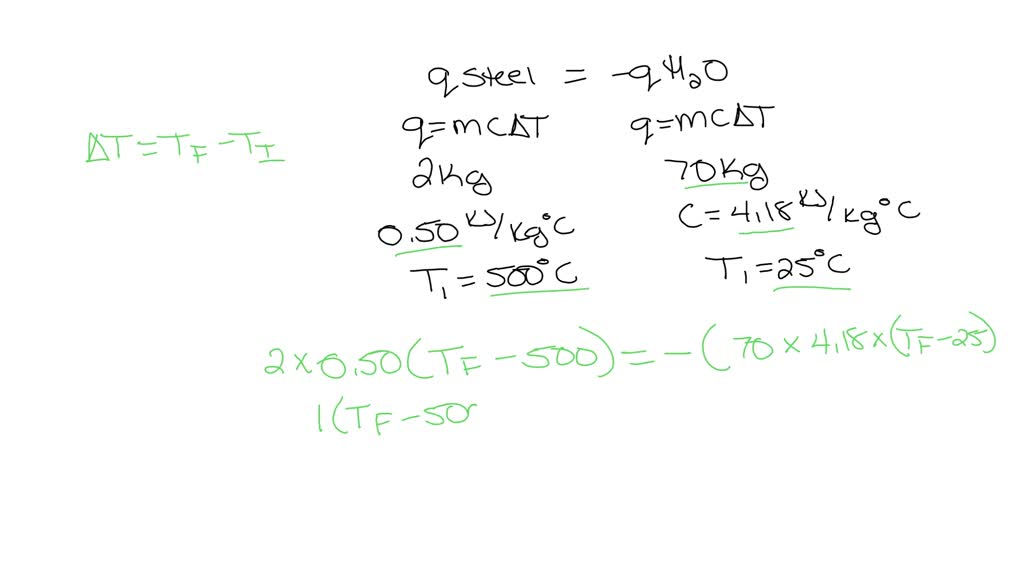 q steel = -qH₂O
q=mCΔT q=mCΔT
ΔT=T_F-T_I
2kg 70kg
0.50 KJ/kg°C C=4.18 KJ/kg°C
T₁=500°C T₁=25°C
2×0.50(T_F-500)=-(70×4.18×(T_F-25)
1(T_F-50